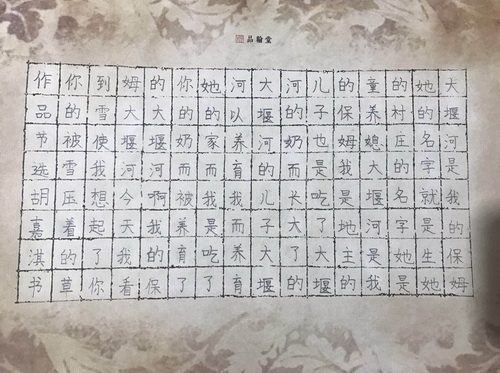 品验堂
大堰河是我的保姆
她的名字就是生她
的村庄的名字她是
童养媳大堰河是我
的保姆我是地主的
儿子也是吃了大堰
河的奶而长大了的
大堰河的儿子大堰
河以养育我而养育
她的家而我是吃了
你的奶而被养育了
的大堰河啊我的保
姆大堰河今天我看
到雪使我想起了你
你的被雪压着的草
作品节选胡嘉淇书